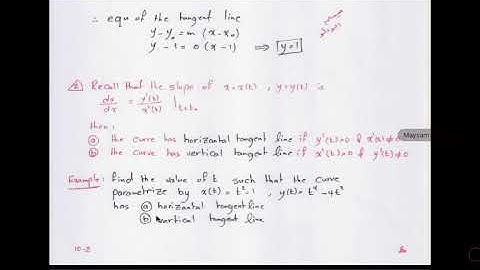 ∴ equ of the tangent line
y - y₀ = m (x - x₀)
y - 1 = 0 (x - 1) ⟹ y = 1
② Recall that the slope of x = x(t), y = y(t) is
dy/dx = y'(t)/x'(t) |t=t₀
then:
ⓐ the curve has horizontal tangent line if y'(t)=0 & x'(t)≠0
ⓑ the curve has vertical tangent line if x'(t)=0 & y'(t)≠0
Maysam
Example: Find the value of t such that the curve
parametrize by x(t) = t² - 1, y(t) = t⁴ - 4t²
has ⓐ horizontal tangent line
ⓑ vertical tangent line
10-2